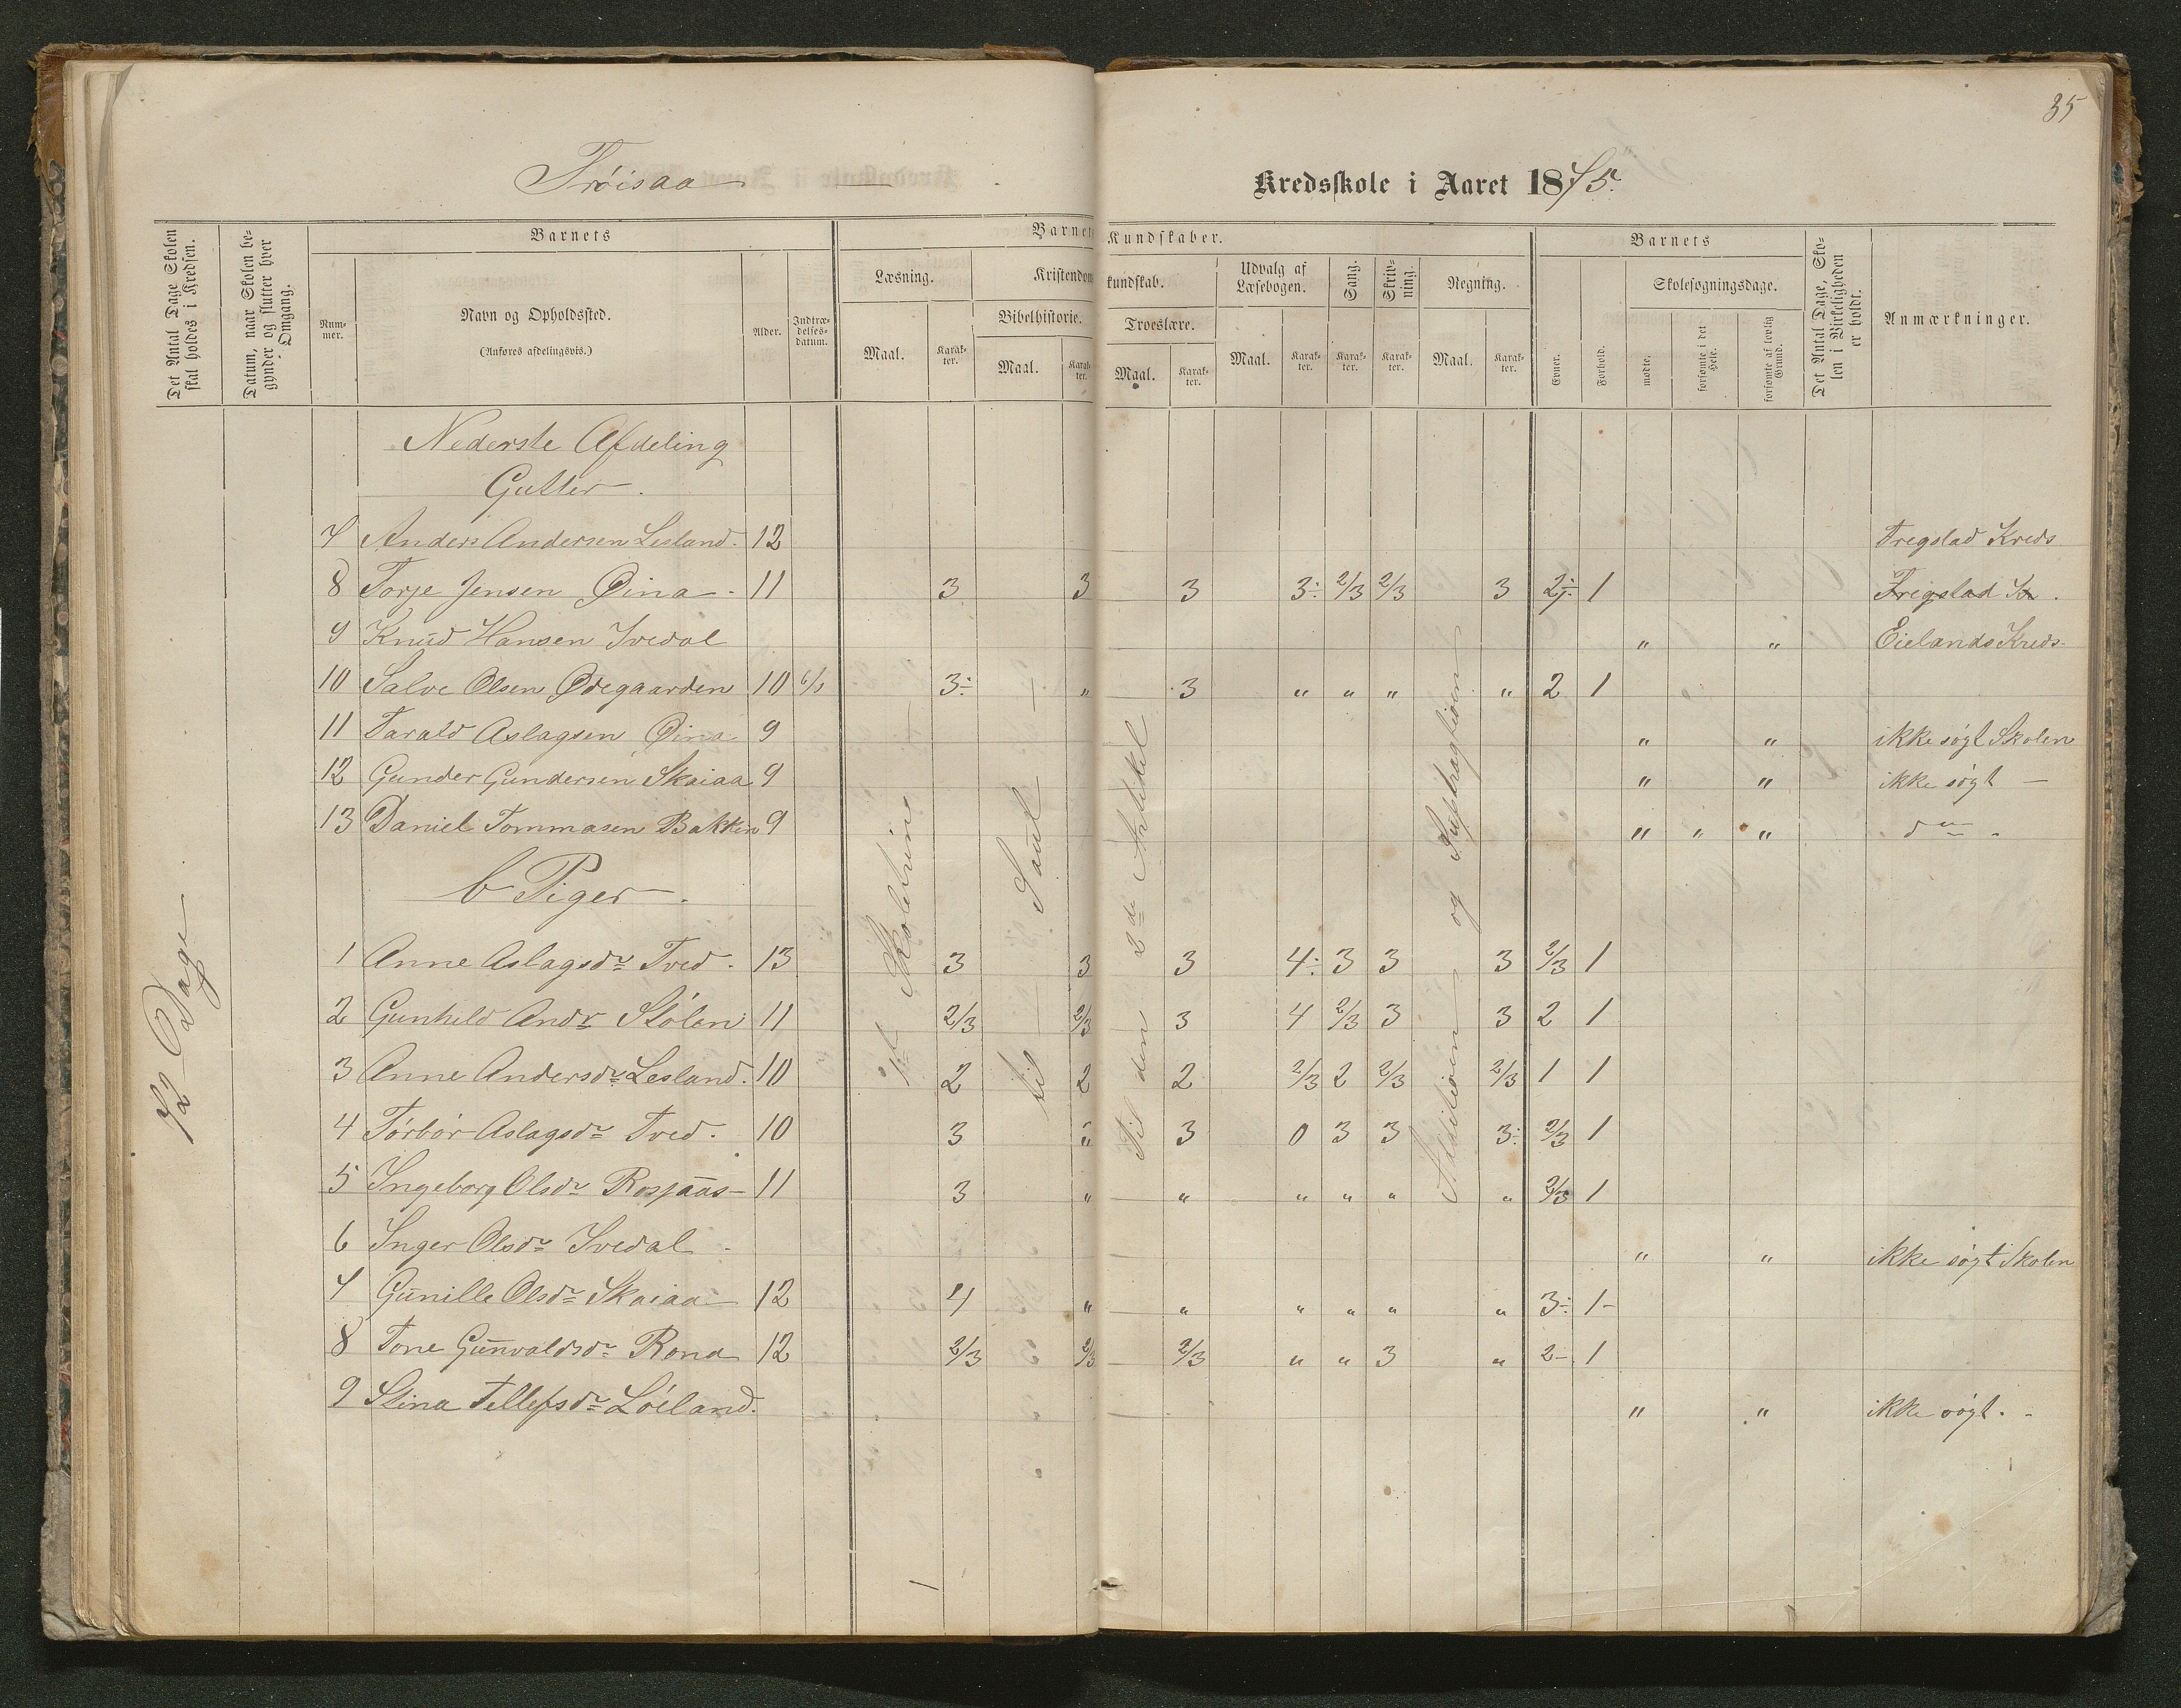 35
Trøisaa
Kredsskole i Aaret 1875.
Det Antal Dage Skolen skal holdes i Kredsen.
Datum, naar Skolen begynder og slutter hver Omgang.
Barnets
Nummer.
Navn og Opholdssted.
(Anføres afdelingsvis.)
Alder.
Indtrædelsesdatum.
Barnets Kundskaber.
Læsning.
Maal.
Karakter.
Kristendomskundskab.
Bibelhistorie.
Maal.
Karakter.
Troeslære.
Maal.
Karakter.
Udvalg af Læsebogen.
Maal.
Karakter.
Sang.
Karakter.
Skrivning.
Karakter.
Regning.
Maal.
Karakter.
Barnets
Evner.
Forhold.
Skolesøgningsdage.
mødte.
forsømte i det Hele.
forsømte af lovlig Grund.
Det Antal Dage, Skolen i Virkeligheden er holdt.
Anmærkninger.
72 Dage
Nederste Afdeling
Gutter.
7 Anders Andersen Lesland. 12 Tregslad Kreds
8 Torje Jensen Øina. 11 3 3 3 3÷ 2/3 2/3 3 2÷ 1 Fregslad Kr.
9 Knud Hansen Ivedal " " Eielands Kreds
10 Salve Olsen Ødegaarden 10 6/1 3÷ " 3 " " " " 2 1
11 Tarald Aslagsen Øina 9 " " ikke søgt Skolen
12 Gunder Gundersen Skaiaa 9 " " ikke søgt —
13 Daniel Tommasen Bakken 9 " " " do
b Piger.
1 Anne Aslagsdr Tved. 13 3 3 3 4÷ 3 3 3 2/3 1
2 Gunhild Andr Stölen 11 2/3 2/3 3 4 2/3 3 3 2 1
3 Anne Andersdr Lesland. 10 2 2 2 2/3 2 2/3 2/3 1 1
4 Tórbór Aslagsdr Tved. 10 3 " 3 0 3 3 3÷ 2/3 1
5 Ingeborg Olsdr Rosjaas 11 3 " " " " " " 2/3 1
6 Inger Olsdr Ivedal " " ikke søgt Skolen
7 Gunille Olsdr Skaiaa 12 4 " " " " " " 3÷ 1
8 Tone Gunvaldsdr Rona 12 2/3 2/3 2/3 " " 3 " 2- 1
9 Stina Tellefsdr Lóiland. " " ikke søgt.
til Saul
Til den 2den Artikel
Additionen og Subtragtionen